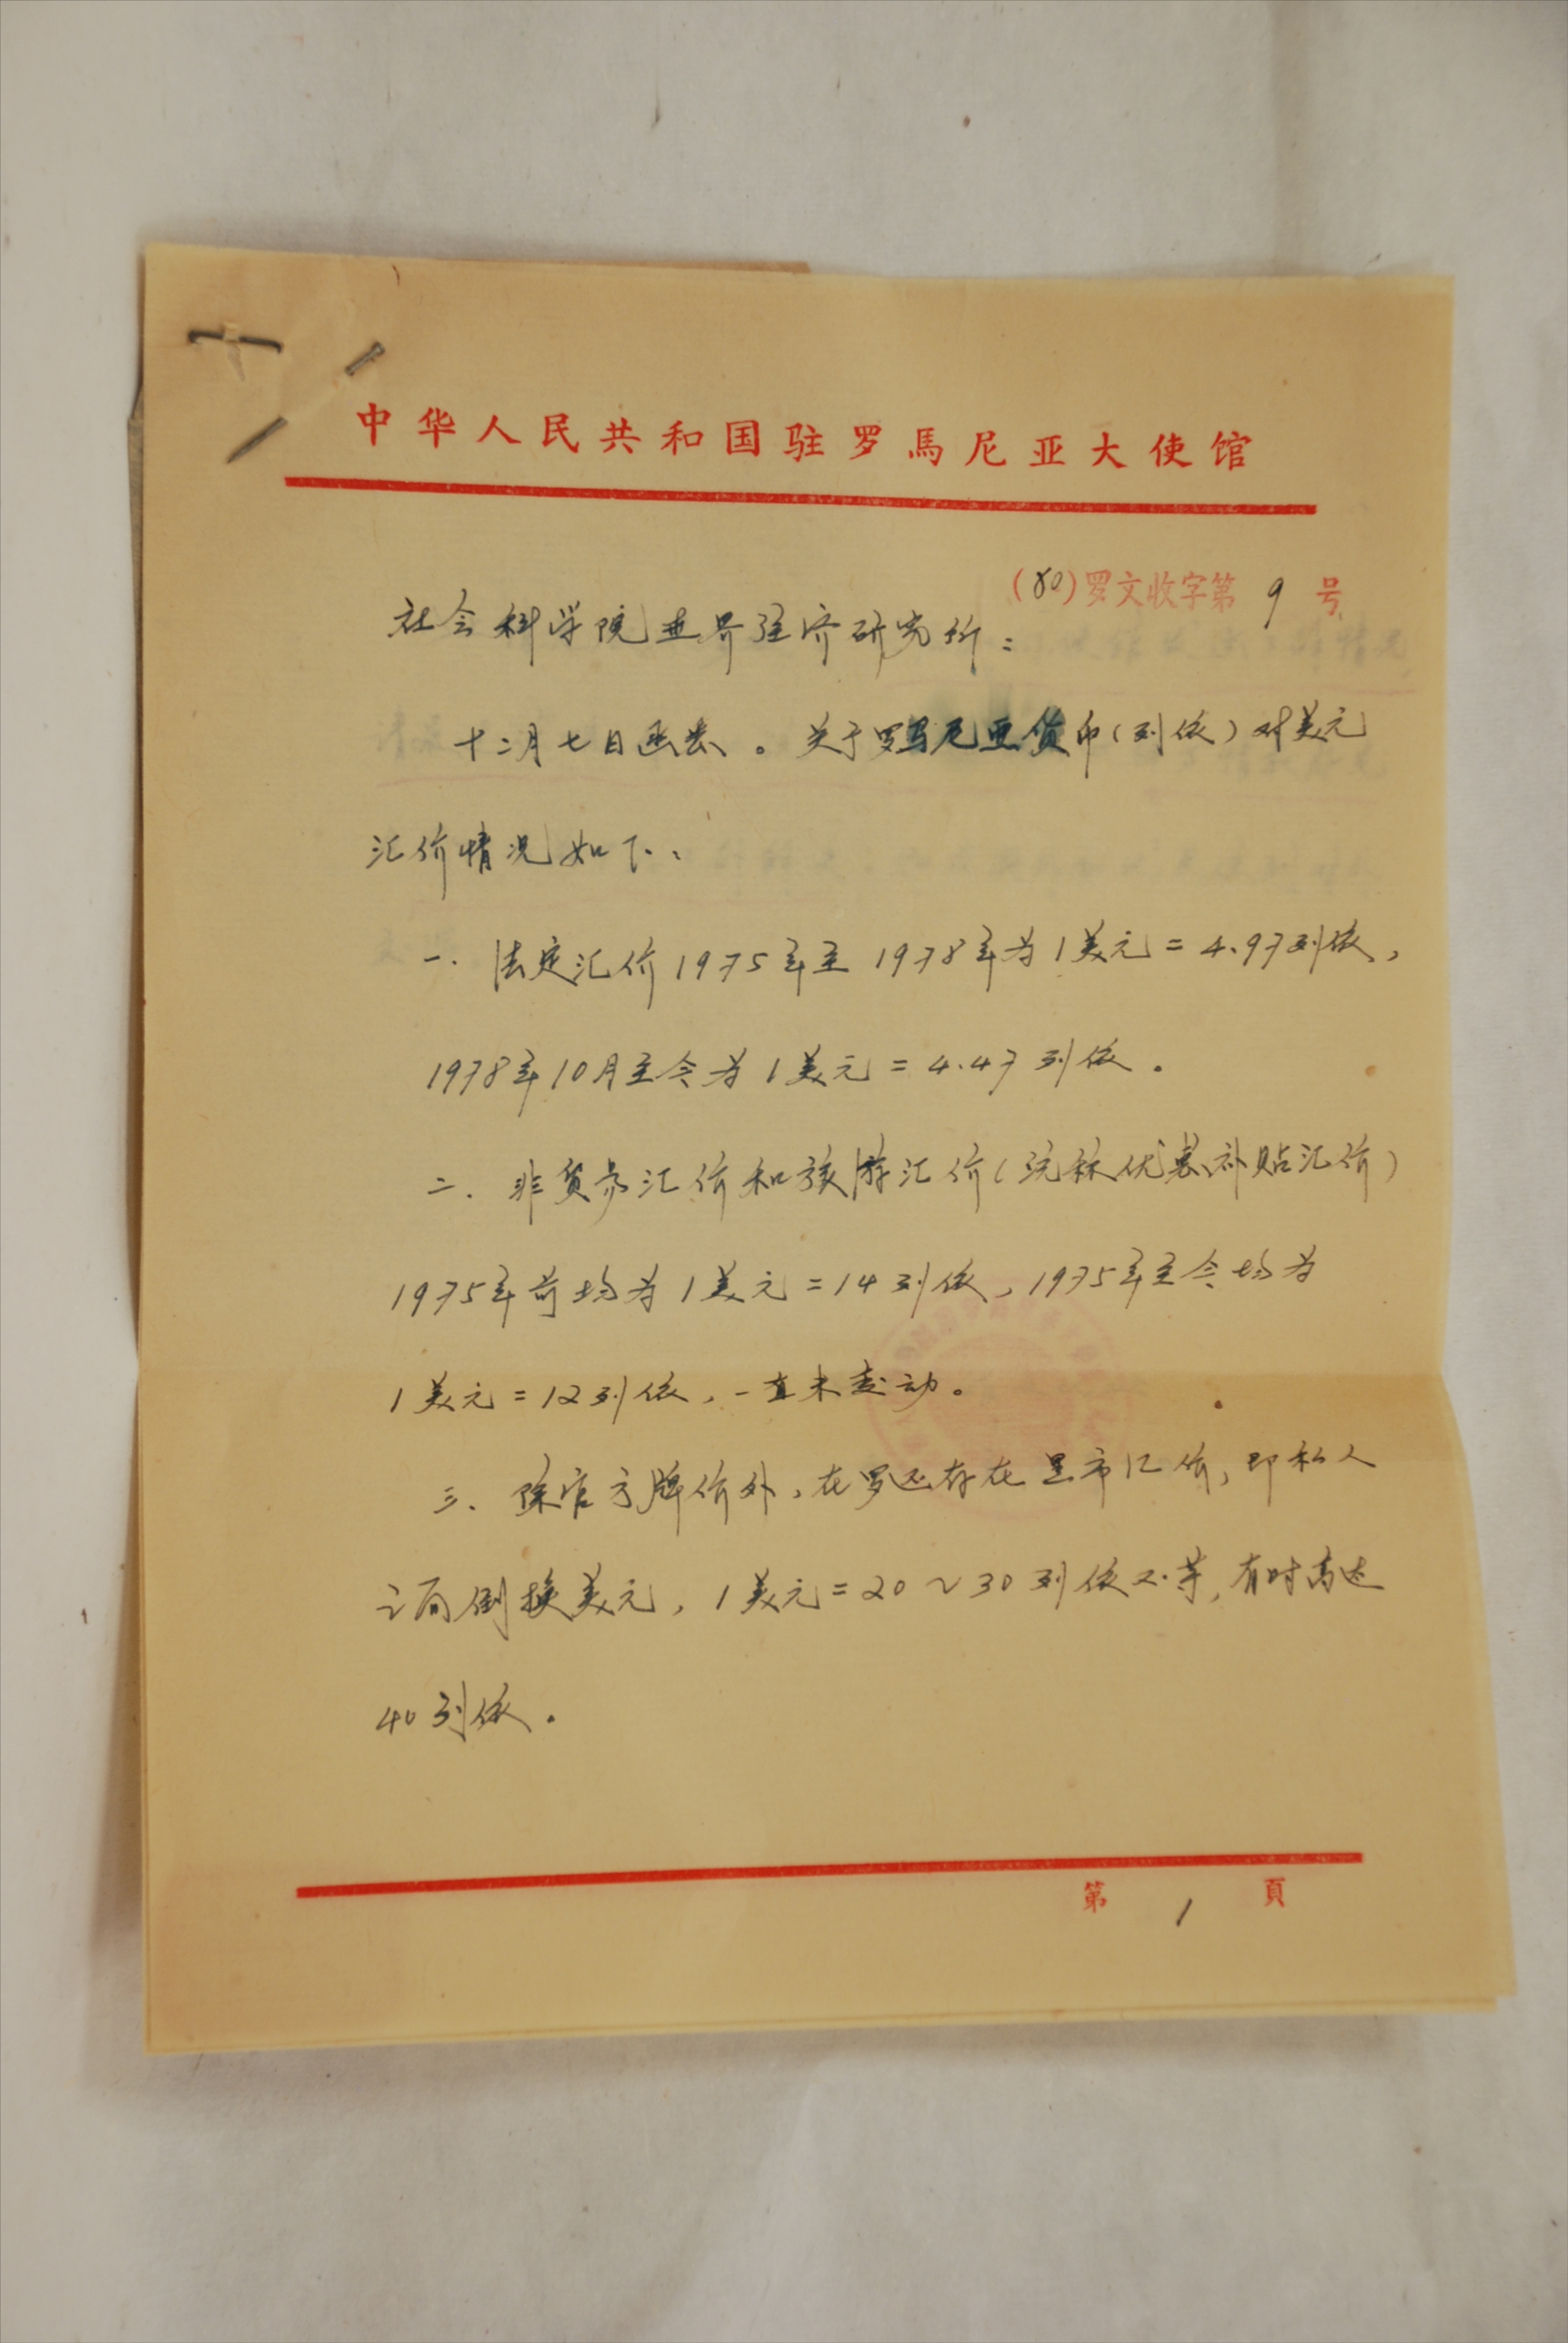 中华人民共和国驻罗馬尼亚大使馆
(80)罗文收字第 9 号
社会科学院世界经济研究所：
十二月七日函悉。关于罗马尼亚货币(列依)对美元
汇价情况如下：
一. 法定汇价1975年至1978年为1美元=4.97列依，
1978年10月至今为1美元=4.47列依。
二. 非贸易汇价和旅游汇价(统称优惠补贴汇价)
1975年前均为1美元=14列依，1975年至今均为
1美元=12列依，一直未变动。
三. 除官方牌价外，在罗还存在黑市汇价，即私人
之间倒换美元，1美元=20~30列依不等，有时高达
40列依。
第 1 頁